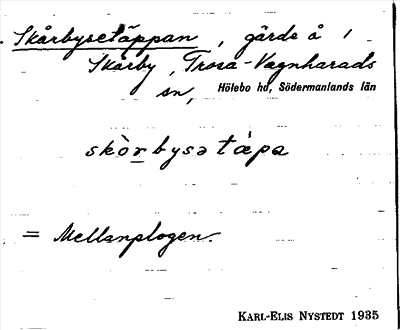 Skårbysetäppan, gärde å 1
Skårby, Trosa-Vagnhärads
sn, Hölebo hd, Södermanlands län
skòr̲bysə tȧpa
= Mellanplogen.
KARL-ELIS NYSTEDT 1935